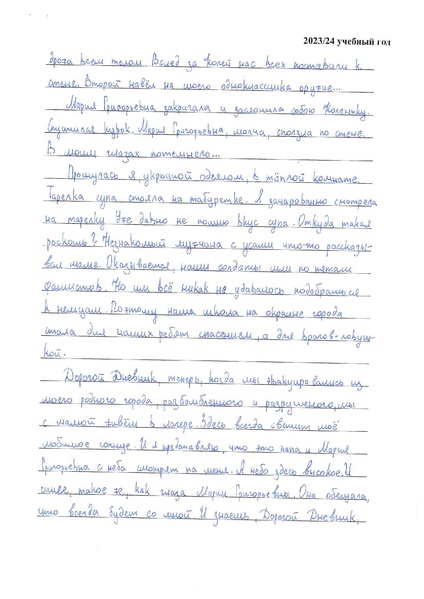 2023/24 учебный год
дрожа всем телом. Вслед за Колей нас всех поставили к
стене. Второй навёл на моего одноклассника оружие...
Мария Григорьевна закричала и заслонила собою Коленьку.
Спустился курок. Мария Григорьевна, молча, сползла по стене.
В моих глазах потемнело...
Проснулась я укрытой одеялом, в тёплой комнате.
Тарелка супа стояла на табуретке. Я зачарованно смотрела
на тарелку. Уже давно не помню вкус супа. Откуда такая
роскошь? Незнакомый мужчина с усами что-то рассказы-
вал маме. Оказывается, наши солдаты шли по пятам
фашистов. Но им всё никак не удавалось подобраться
к немцам. Поэтому наша школа на окраине города
стала для наших ребят спасением, а для врагов-ловуш-
кой.
Дорогой Дневник, теперь, когда мы эвакуировались из
моего родного города, разбомбленного и разрушеного, мы
с мамой живём в лагере. Здесь всегда светит моё
любимое солнце. И я представляю, что это папа и Мария
Григорьевна с неба смотрят на меня. А небо здесь высокое. И
синее, такое же, как глаза Марии Григорьевны. Она обещала,
что всегда будет со мной. И знаешь, Дорогой Дневник,